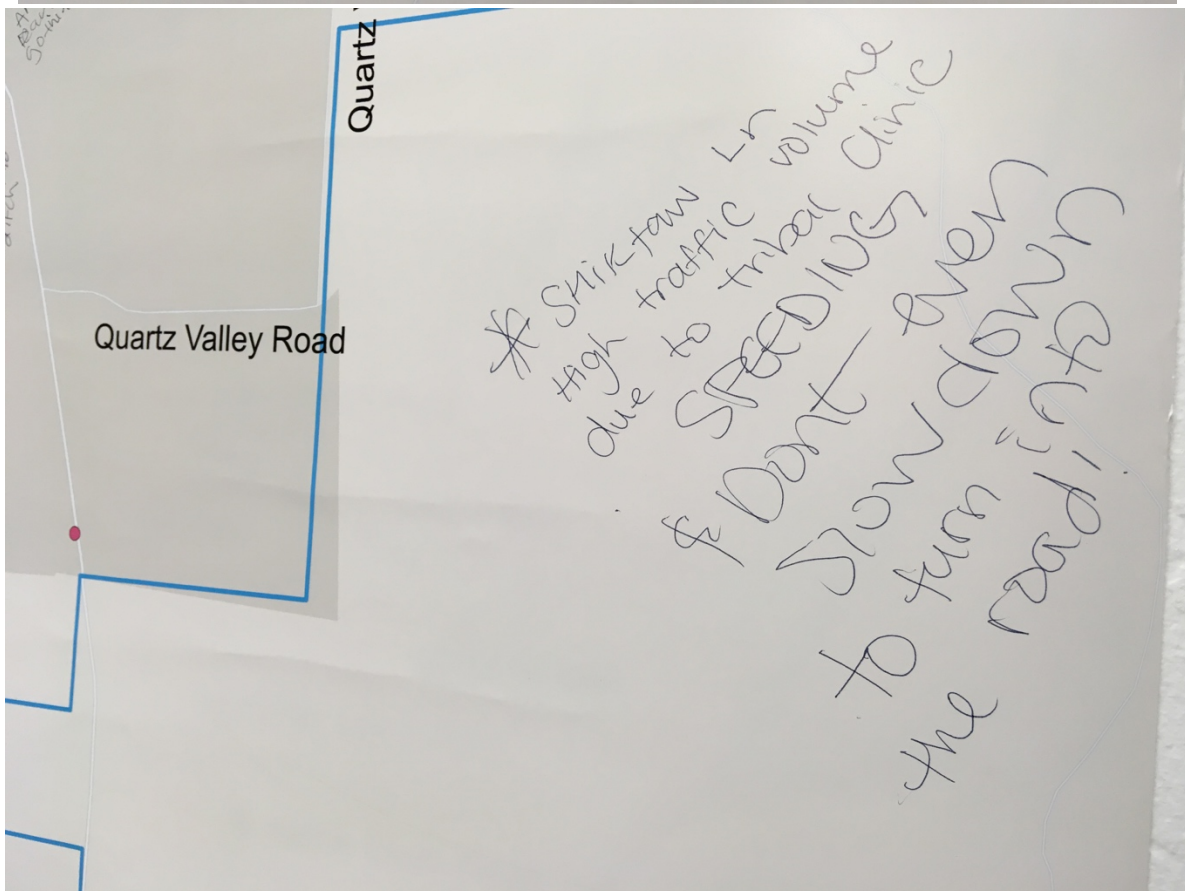 Quartz
Quartz Valley Road
* Shiktaw Ln
High traffic volume
due to tribal clinic
SPEEDING
& Dont even
slow down
to turn into
the road